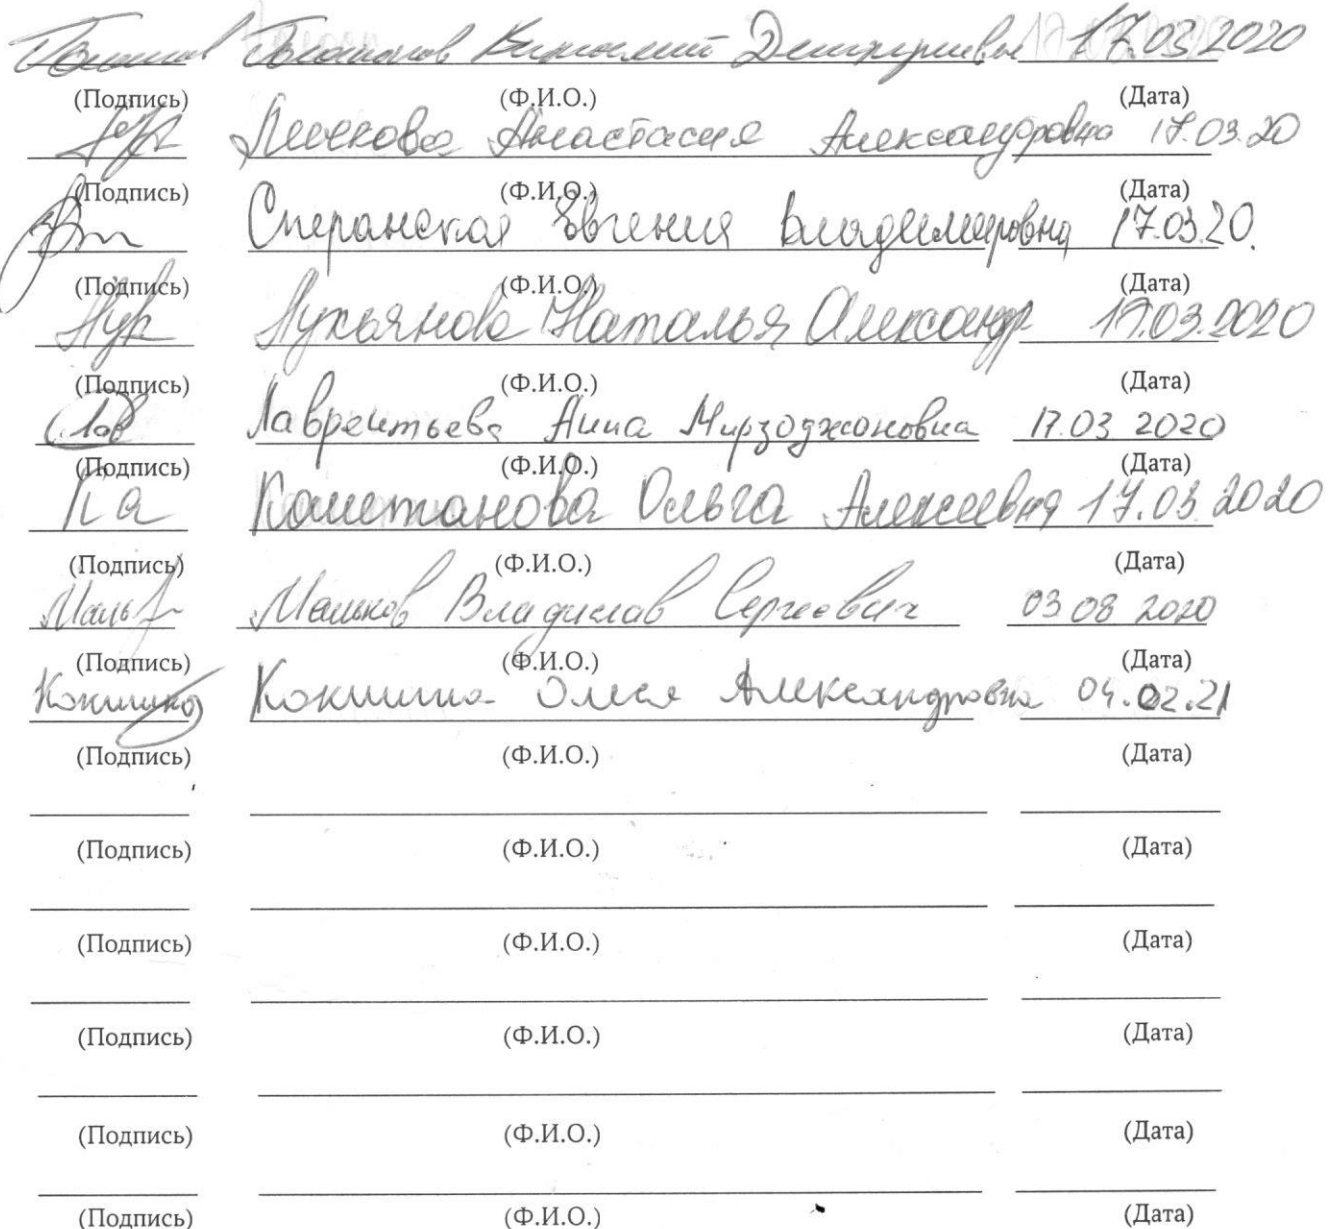 Дмитриевич 17.03.2020
(Подпись) (Ф.И.О.) (Дата)
Анастасия Александровна 17.03.20
(Подпись) (Ф.И.О.) (Дата)
Сперанская Евгения Владимировна 17.03.20.
(Подпись) (Ф.И.О.) (Дата)
Лукьянова Наталья Александр 17.03.2020
(Подпись) (Ф.И.О.) (Дата)
Лав Лаврентьева Анна Мирзоджоновна 17.03 2020
(Подпись) (Ф.И.О.) (Дата)
Ка Каштанова Ольга Алексеевна 17.03.2020
(Подпись) (Ф.И.О.) (Дата)
Мальков Владислав Сергеевич 03 08 2020
(Подпись) (Ф.И.О.) (Дата)
Кокшина Олеся Александровна 04.02.21
(Подпись) (Ф.И.О.) (Дата)
(Подпись) (Ф.И.О.) (Дата)
(Подпись) (Ф.И.О.) (Дата)
(Подпись) (Ф.И.О.) (Дата)
(Подпись) (Ф.И.О.) (Дата)
(Подпись) (Ф.И.О.) (Дата)